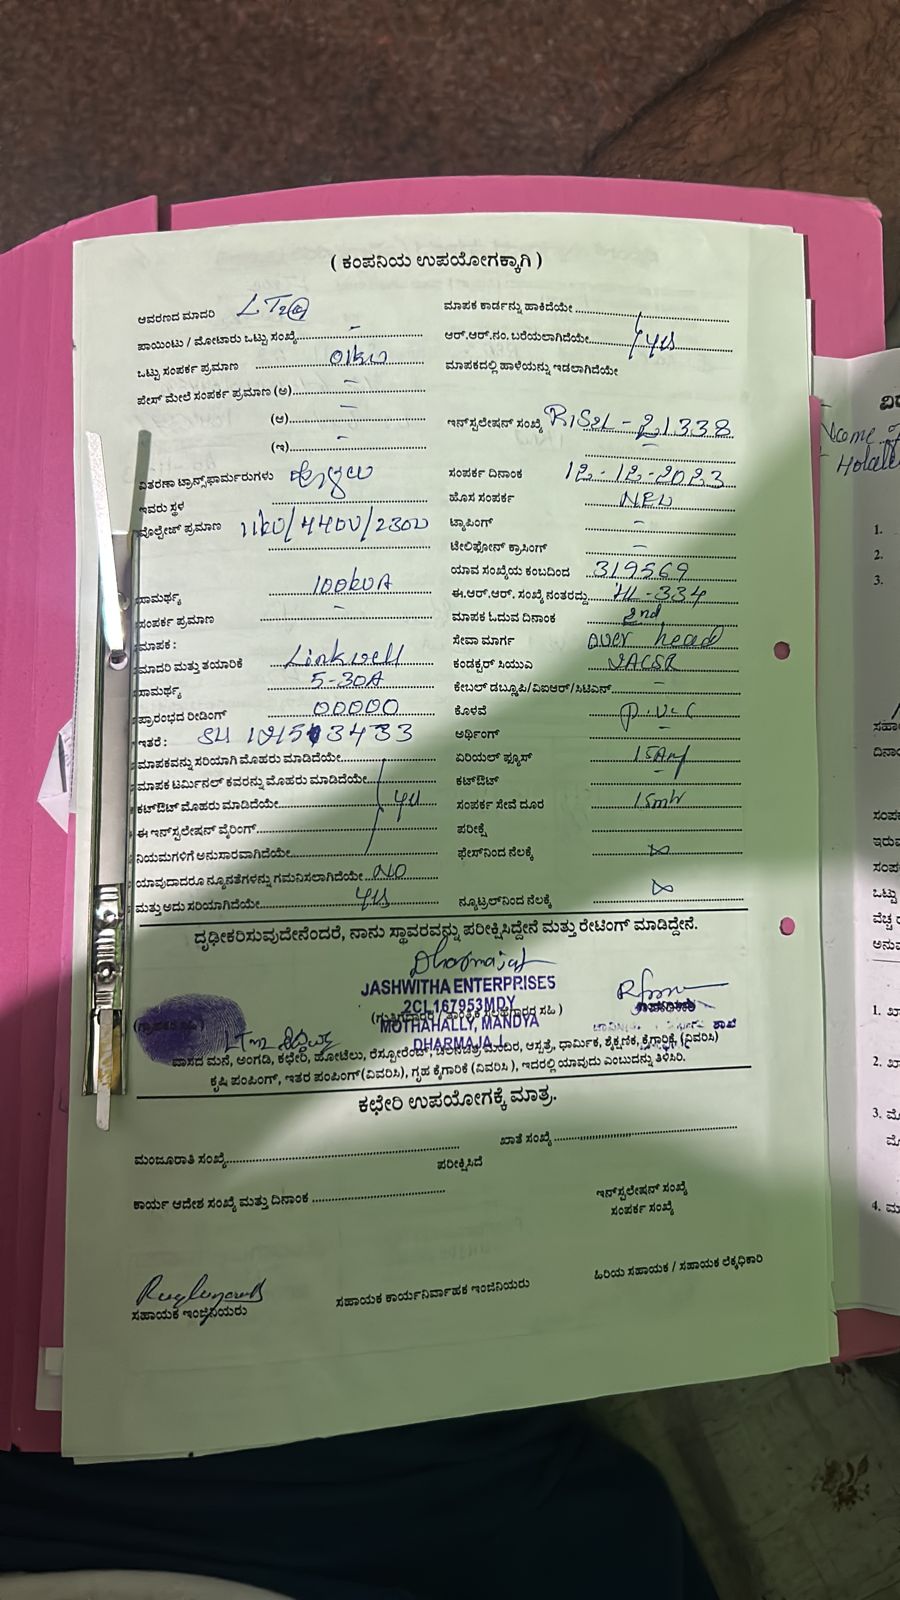 ( ಕಂಪನಿಯ ಉಪಯೋಗಕ್ಕಾಗಿ )
ಆವರಣದ ಮಾದರಿ LT2(a)
ಪಾಯಿಂಟು / ಮೋಟಾರು ಒಟ್ಟು ಸಂಖ್ಯೆ -
ಒಟ್ಟು ಸಂಪರ್ಕ ಪ್ರಮಾಣ 01kw
ಪೇಸ್ ಮೇಲೆ ಸಂಪರ್ಕ ಪ್ರಮಾಣ (ಅ) -
(ಆ) -
(ಇ) -
ವಿತರಣಾ ಟ್ರಾನ್ಸ್‌ಫಾರ್ಮರುಗಳು
ಇವರು ಸ್ಥಳ
ವೊಲ್ಟೇಜ್ ಪ್ರಮಾಣ 11kv/440v/230v
ಸಾಮರ್ಥ್ಯ 100kVA
ಸಂಪರ್ಕ ಪ್ರಮಾಣ -
ಮಾಪಕ :
ಮಾದರಿ ಮತ್ತು ತಯಾರಿಕೆ Linkwell
ಸಾಮರ್ಥ್ಯ 5-30A
ಪ್ರಾರಂಭದ ರೀಡಿಂಗ್ 00000
ಇತರೆ :
ಮಾಪಕವನ್ನು ಸರಿಯಾಗಿ ಮೊಹರು ಮಾಡಿದೆಯೇ
ಮಾಪಕ ಟರ್ಮಿನಲ್ ಕವರನ್ನು ಮೊಹರು ಮಾಡಿದೆಯೇ
ಕಟ್‌ಔಟ್ ಮೊಹರು ಮಾಡಿದೆಯೇ yes
ಈ ಇನ್‌ಸ್ಟಲೇಷನ್ ವೈರಿಂಗ್
ನಿಯಮಗಳಿಗೆ ಅನುಸಾರವಾಗಿದೆಯೇ
ಯಾವುದಾದರೂ ನ್ಯೂನತೆಗಳನ್ನು ಗಮನಿಸಲಾಗಿದೆಯೇ NO
ಮತ್ತು ಅದು ಸರಿಯಾಗಿದೆಯೇ yes
ಮಾಪಕ ಕಾರ್ಡನ್ನು ಹಾಕಿದೆಯೇ
ಆರ್.ಆರ್.ನಂ. ಬರೆಯಲಾಗಿದೆಯೇ yes
ಮಾಪಕದಲ್ಲಿ ಹಾಳೆಯನ್ನು ಇಡಲಾಗಿದೆಯೇ
ಇನ್‌ಸ್ಟಲೇಷನ್ ಸಂಖ್ಯೆ
-
ಸಂಪರ್ಕ ದಿನಾಂಕ 12-12-2023
ಹೊಸ ಸಂಪರ್ಕ NEW
ಟ್ಯಾಪಿಂಗ್ -
ಟೇಲಿಫೋನ್ ಕ್ರಾಸಿಂಗ್ -
ಯಾವ ಸಂಖ್ಯೆಯ ಕಂಬದಿಂದ 319569
ಈ.ಆರ್.ಆರ್. ಸಂಖ್ಯೆ ನಂತರದ್ದು HL-334
ಮಾಪಕ ಓದುವ ದಿನಾಂಕ 2nd
ಸೇವಾ ಮಾರ್ಗ over head
ಕಂಡಕ್ಟರ್ ಸಿಯುವಿ
ಕೇಬಲ್ ಡಬ್ಲೂಪಿ/ವಿಐಆರ್/ಸಿಟಿಎನ್ -
ಕೊಳವೆ P.V.C
ಅರ್ಥಿಂಗ್ -
ಏರಿಯಲ್ ಫ್ಯೂಸ್ 15Amp
ಕಟ್‌ಔಟ್ -
ಸಂಪರ್ಕ ಸೇವೆ ದೂರ 15mtr
ಪರೀಕ್ಷೆ
ಫೇಸ್‌ನಿಂದ ನೆಲಕ್ಕೆ ∞
ನ್ಯೂಟ್ರಲ್‌ನಿಂದ ನೆಲಕ್ಕೆ ∞
ದೃಢೀಕರಿಸುವುದೇನೆಂದರೆ, ನಾನು ಸ್ಥಾವರವನ್ನು ಪರೀಕ್ಷಿಸಿದ್ದೇನೆ ಮತ್ತು ರೇಟಿಂಗ್ ಮಾಡಿದ್ದೇನೆ.
Dharmaja
JASHWITHA ENTERPRISES
2CL167953MDY
MOTHAHALLY, MANDYA
DHARMAJA.L
(ಗ್ರಾಹಕರ ಸಹಿ)
ವಾಸದ ಮನೆ, ಅಂಗಡಿ, ಕಛೇರಿ, ಹೋಟೆಲು, ರೆಸ್ಟೋರೆಂಟ್, ಚಲನಚಿತ್ರ ಮಂದಿರ, ಆಸ್ಪತ್ರೆ, ಧಾರ್ಮಿಕ, ಶೈಕ್ಷಣಿಕ, ಕೈಗಾರಿಕೆ, (ವಿವರಿಸಿ)
ಕೃಷಿ ಪಂಪಿಂಗ್, ಇತರ ಪಂಪಿಂಗ್ (ವಿವರಿಸಿ), ಗೃಹ ಕೈಗಾರಿಕೆ (ವಿವರಿಸಿ), ಇದರಲ್ಲಿ ಯಾವುದು ಎಂಬುದನ್ನು ತಿಳಿಸಿರಿ.
ಕಛೇರಿ ಉಪಯೋಗಕ್ಕೆ ಮಾತ್ರ.
ಮಂಜೂರಾತಿ ಸಂಖ್ಯೆ
ಖಾತೆ ಸಂಖ್ಯೆ
ಪರೀಕ್ಷಿಸಿದೆ
ಕಾರ್ಯ ಆದೇಶ ಸಂಖ್ಯೆ ಮತ್ತು ದಿನಾಂಕ
ಇನ್‌ಸ್ಟಲೇಷನ್ ಸಂಖ್ಯೆ
ಸಂಪರ್ಕ ಸಂಖ್ಯೆ
ಸಹಾಯಕ ಇಂಜಿನಿಯರು
ಸಹಾಯಕ ಕಾರ್ಯನಿರ್ವಾಹಕ ಇಂಜಿನಿಯರು
ಹಿರಿಯ ಸಹಾಯಕ / ಸಹಾಯಕ ಲೆಕ್ಕಧಿಕಾರಿ